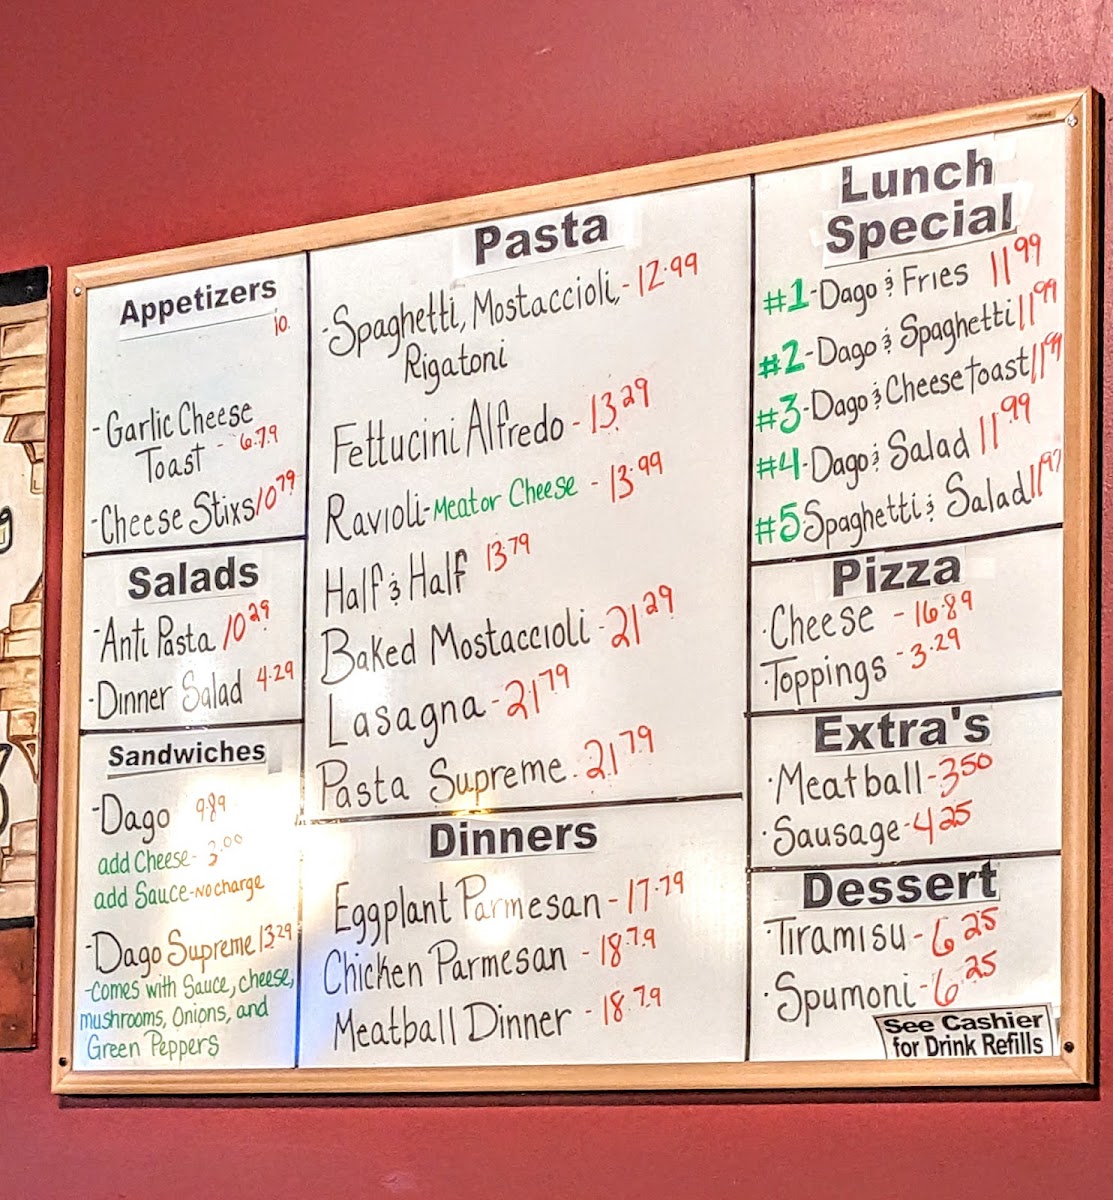 Appetizers
10.
-Garlic Cheese
Toast - 6.79
-Cheese Stixs 10 79
Salads
-Anti Pasta 10 29
-Dinner Salad 4.29
Sandwiches
-Dago 9.89
add Cheese- 2.00
add Sauce-no charge
-Dago Supreme 13 29
-comes with Sauce, cheese,
mushrooms, Onions, and
Green Peppers
Pasta
-Spaghetti, Mostaccioli,- 12.99
Rigatoni
Fettucini Alfredo - 13.29
Ravioli-Meat or Cheese - 13.99
Half & Half 13.79
Baked Mostaccioli - 21 29
Lasagna - 21 79
Pasta Supreme - 21 79
Dinners
Eggplant Parmesan - 17.79
Chicken Parmesan - 18.79
Meatball Dinner - 18.79
Lunch
Special
#1-Dago & Fries 11 99
#2-Dago & Spaghetti 11 99
#3-Dago & Cheese toast 11 99
#4-Dago & Salad 11.99
#5 Spaghetti & Salad 11 99
Pizza
·Cheese - 16.89
·Toppings - 3.29
Extra's
·Meatball - 3 50
·Sausage - 4 25
Dessert
·Tiramisu - 6 25
·Spumoni - 6.25
See Cashier
for Drink Refills